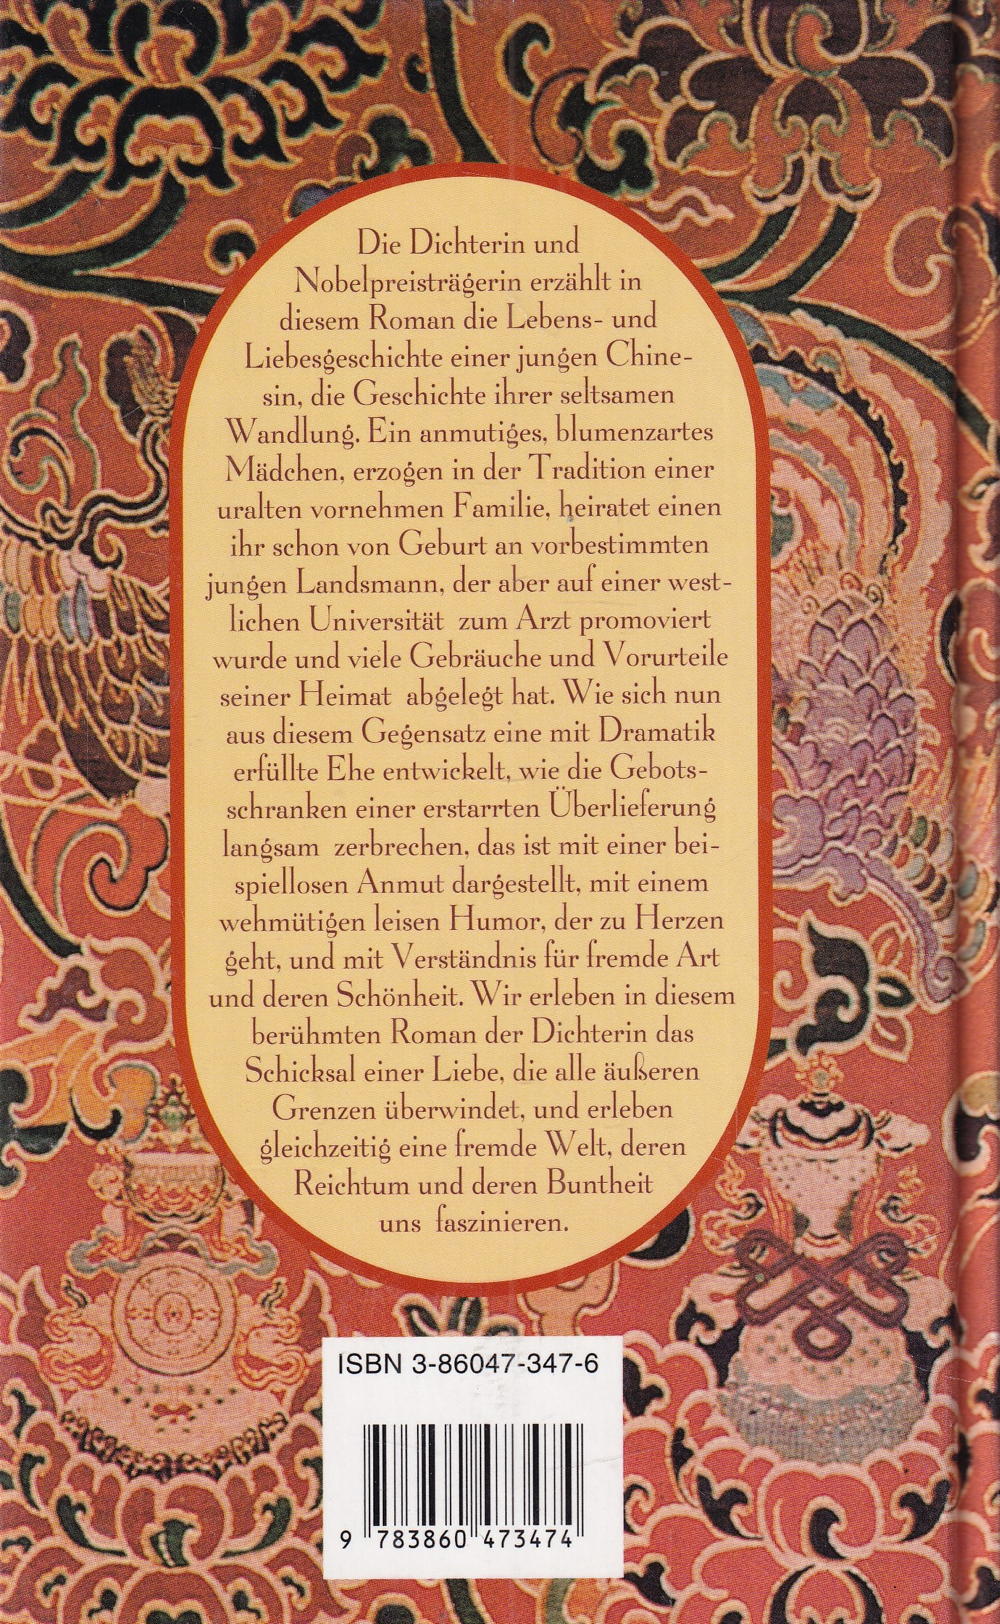 Die Dichterin und
Nobelpreisträgerin erzählt in
diesem Roman die Lebens- und
Liebesgeschichte einer jungen Chine-
sin, die Geschichte ihrer seltsamen
Wandlung. Ein anmutiges, blumenzartes
Mädchen, erzogen in der Tradition einer
uralten vornehmen Familie, heiratet einen
ihr schon von Geburt an vorbestimmten
jungen Landsmann, der aber auf einer west-
lichen Universität zum Arzt promoviert
wurde und viele Gebräuche und Vorurteile
seiner Heimat abgelegt hat. Wie sich nun
aus diesem Gegensatz eine mit Dramatik
erfüllte Ehe entwickelt, wie die Gebots-
schranken einer erstarrten Überlieferung
langsam zerbrechen, das ist mit einer bei-
spiellosen Anmut dargestellt, mit einem
wehmütigen leisen Humor, der zu Herzen
geht, und mit Verständnis für fremde Art
und deren Schönheit. Wir erleben in diesem
berühmten Roman der Dichterin das
Schicksal einer Liebe, die alle äußeren
Grenzen überwindet, und erleben
gleichzeitig eine fremde Welt, deren
Reichtum und deren Buntheit
uns faszinieren.
ISBN 3-86047-347-6
9 783860 473474